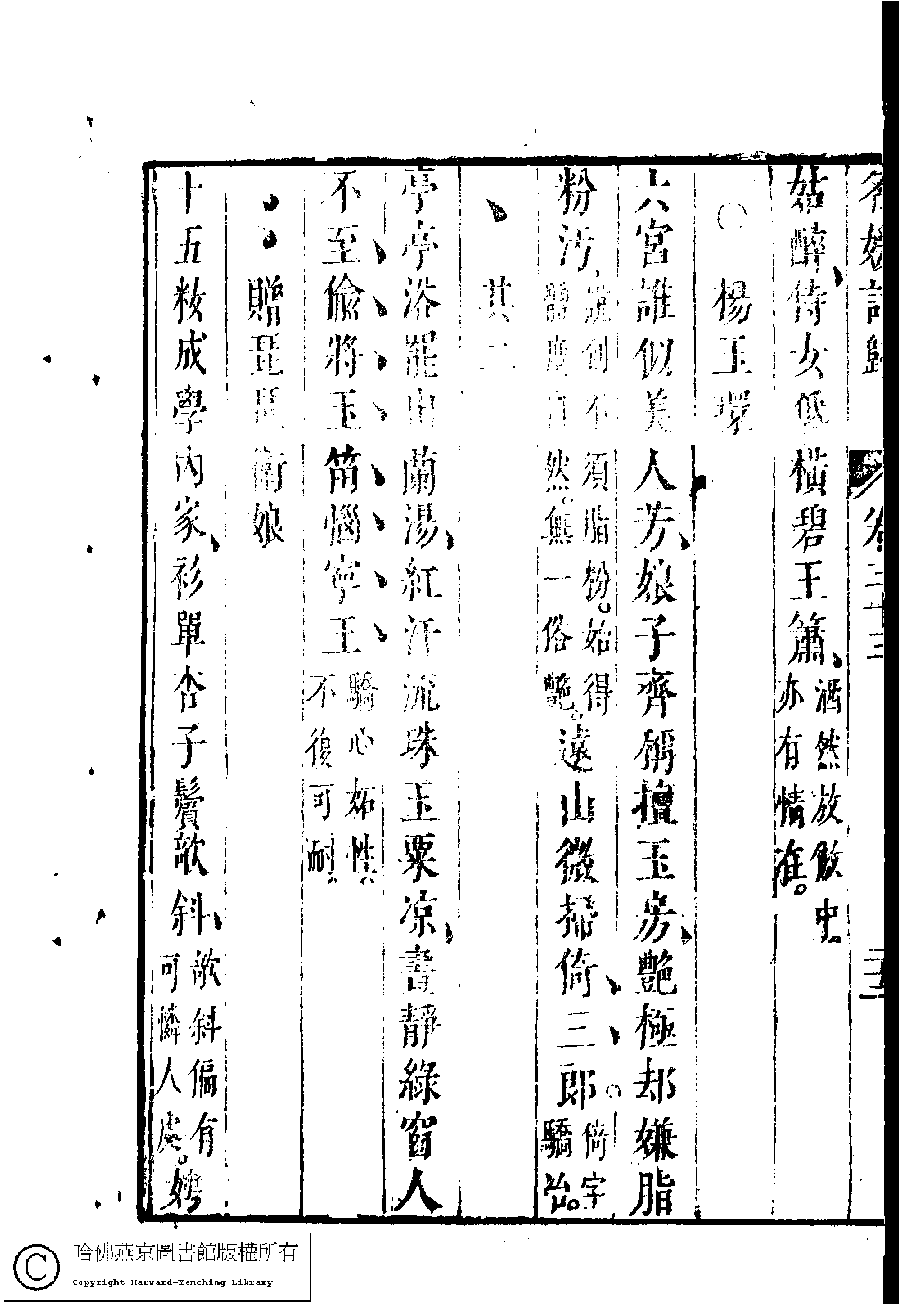 名媛詩歸 卷三十三 十三
姑醉侍女低橫碧玉簫洒然放飲中亦有情淮
楊玉環
六宮誰似美人芳娘子齊稱擅玉房艷極却嫌脂
粉汚不須脂粉始得自然無一俗艷遠山微掃倚三郎倚字驕冶
其二
亭亭浴罷出蘭湯紅汗流珠玉粟凉晝靜綠窗人
不至偸將玉笛惱寧王驕心妬性不復可耐
贈琵琶衛娘
十五妝成學內家衫單杏子鬢欹斜欹斜偏有可憐人處娉
哈佛燕京圖書館版權所有
Copyright Harvard-Yenching Library